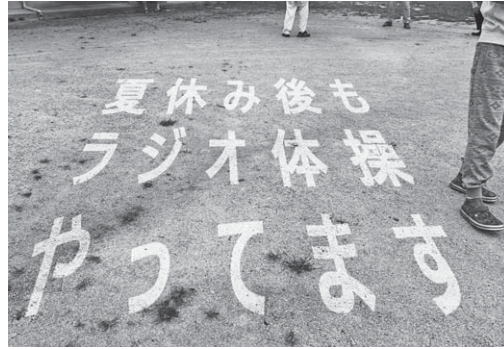 夏休み後も
ラジオ体操
やってます